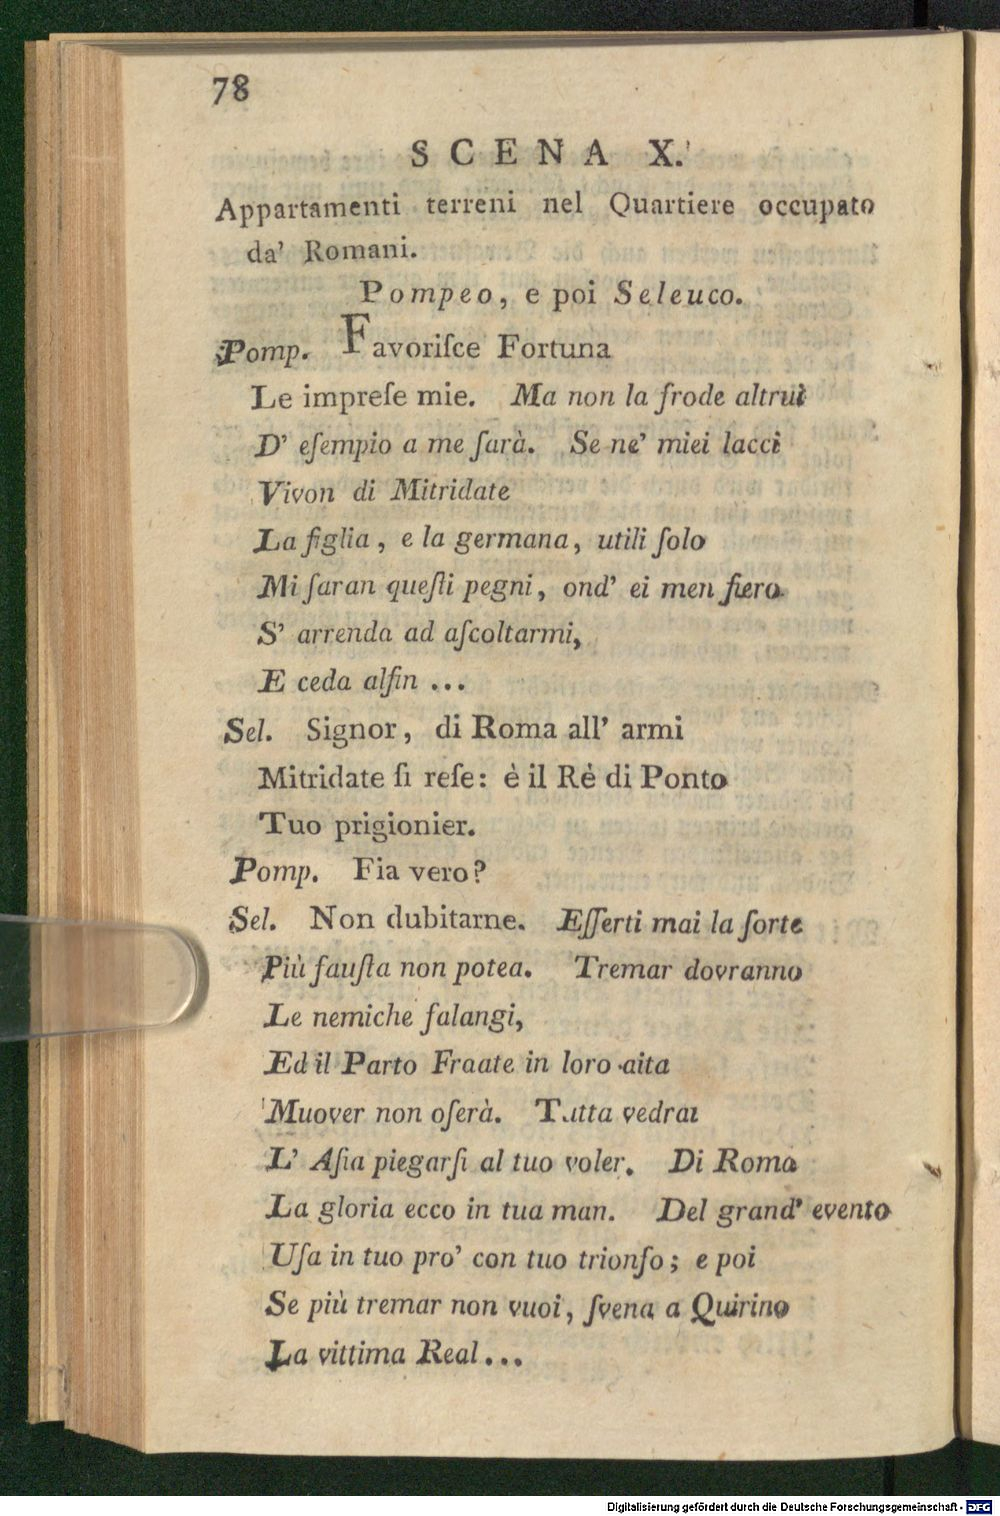 78
SCENA X.
Appartamenti terreni nel Quartiere occupato
da' Romani.
Pompeo, e poi Seleuco.
Pomp. Favoriſce Fortuna
Le impreſe mie. Ma non la frode altrui
D' eſempio a me ſarà. Se ne' miei lacci
Vivon di Mitridate
La figlia, e la germana, utili ſolo
Mi ſaran queſti pegni, ond' ei men fiero
S' arrenda ad aſcoltarmi,
E ceda alfin ...
Sel. Signor, di Roma all' armi
Mitridate ſi reſe: è il Rè di Ponto
Tuo prigionier.
Pomp. Fia vero?
Sel. Non dubitarne. Eſſerti mai la ſorte
Più fauſta non potea. Tremar dovranno
Le nemiche falangi,
Ed il Parto Fraate in loro aita
Muover non oſerà. Tutta vedrai
L' Aſia piegarſi al tuo voler. Di Roma
La gloria ecco in tua man. Del grand' evento
Uſa in tuo pro' con tuo trionfo; e poi
Se più tremar non vuoi, ſvena a Quirino
La vittima Real...
Digitalisierung gefördert durch die Deutsche Forschungsgemeinschaft - DFG